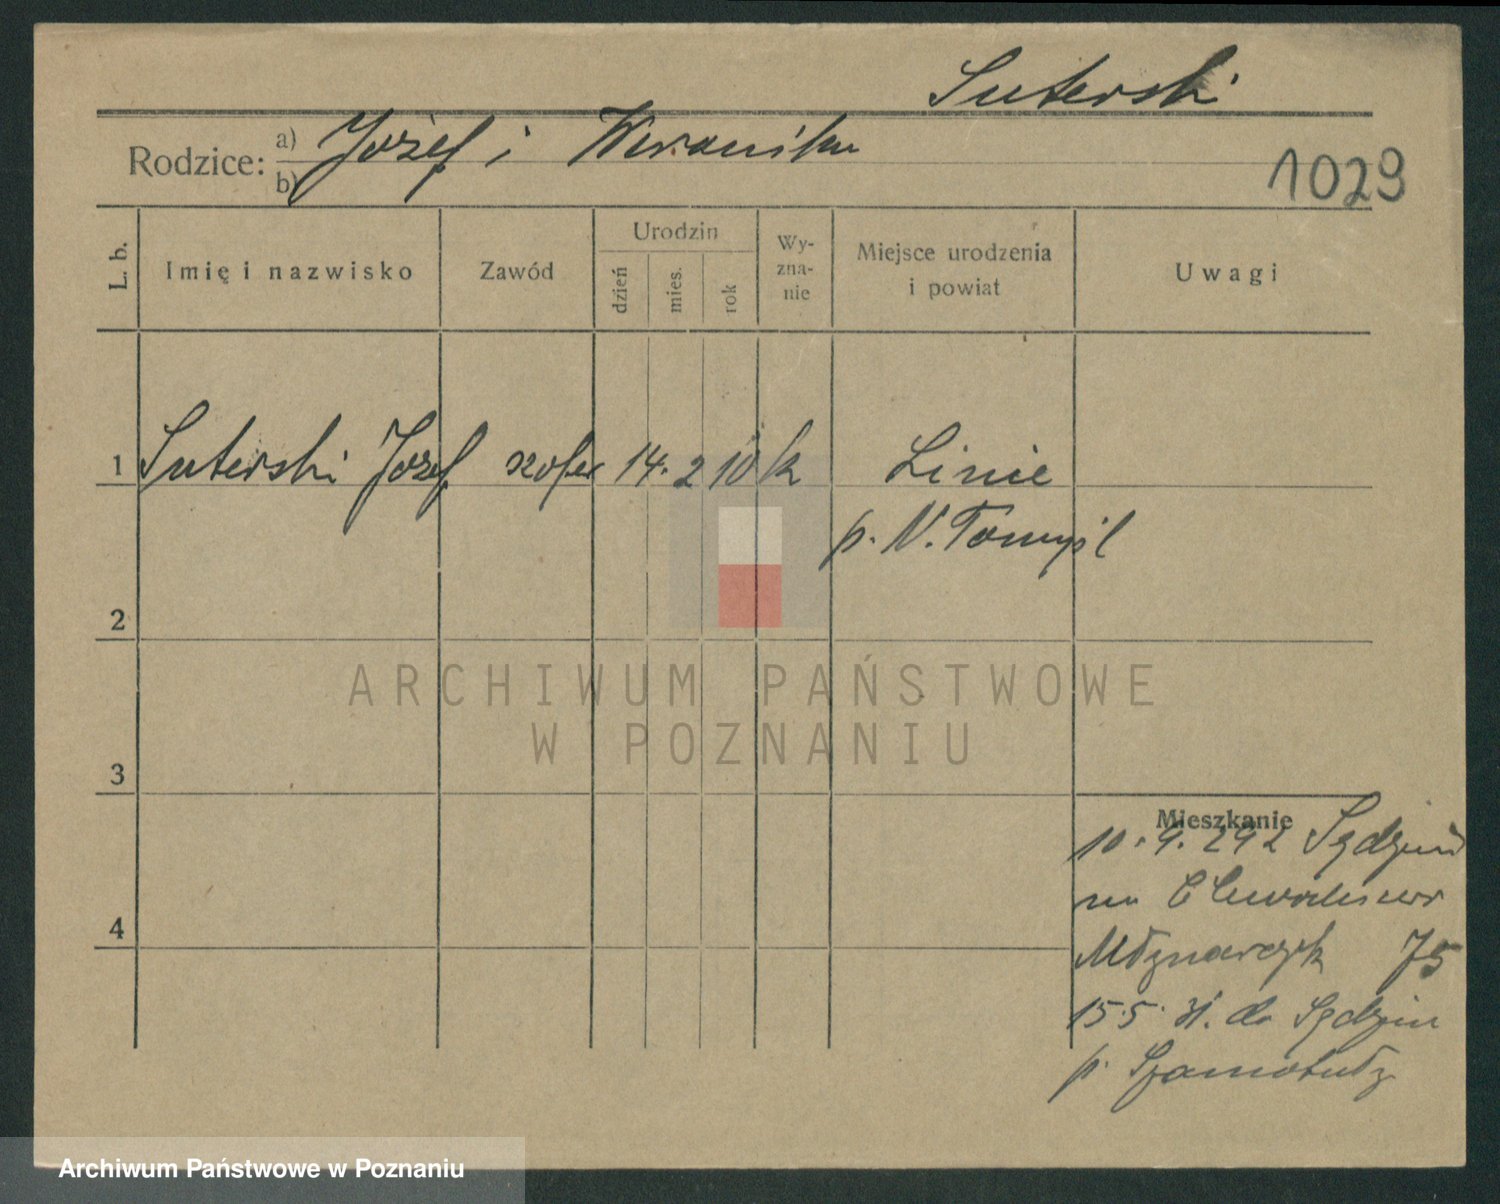 Suterski
Rodzice: a) Józef i Weronika
b)
1029
L. b.
Imię i nazwisko
Zawód
Urodzin
dzień
mies.
rok
Wy-
zna-
nie
Miejsce urodzenia
i powiat
Uwagi
1 Suterski Józef szofer 14. 2 10 k Linie
p. N. Tomyśl
2
3
4
Mieszkanie
10. 9. 292 Sędzin
Młynarczyk 75
15.5.31. do Sędzin
p. Szamotuły
ARCHIWUM PAŃSTWOWE
W POZNANIU
Archiwum Państwowe w Poznaniu